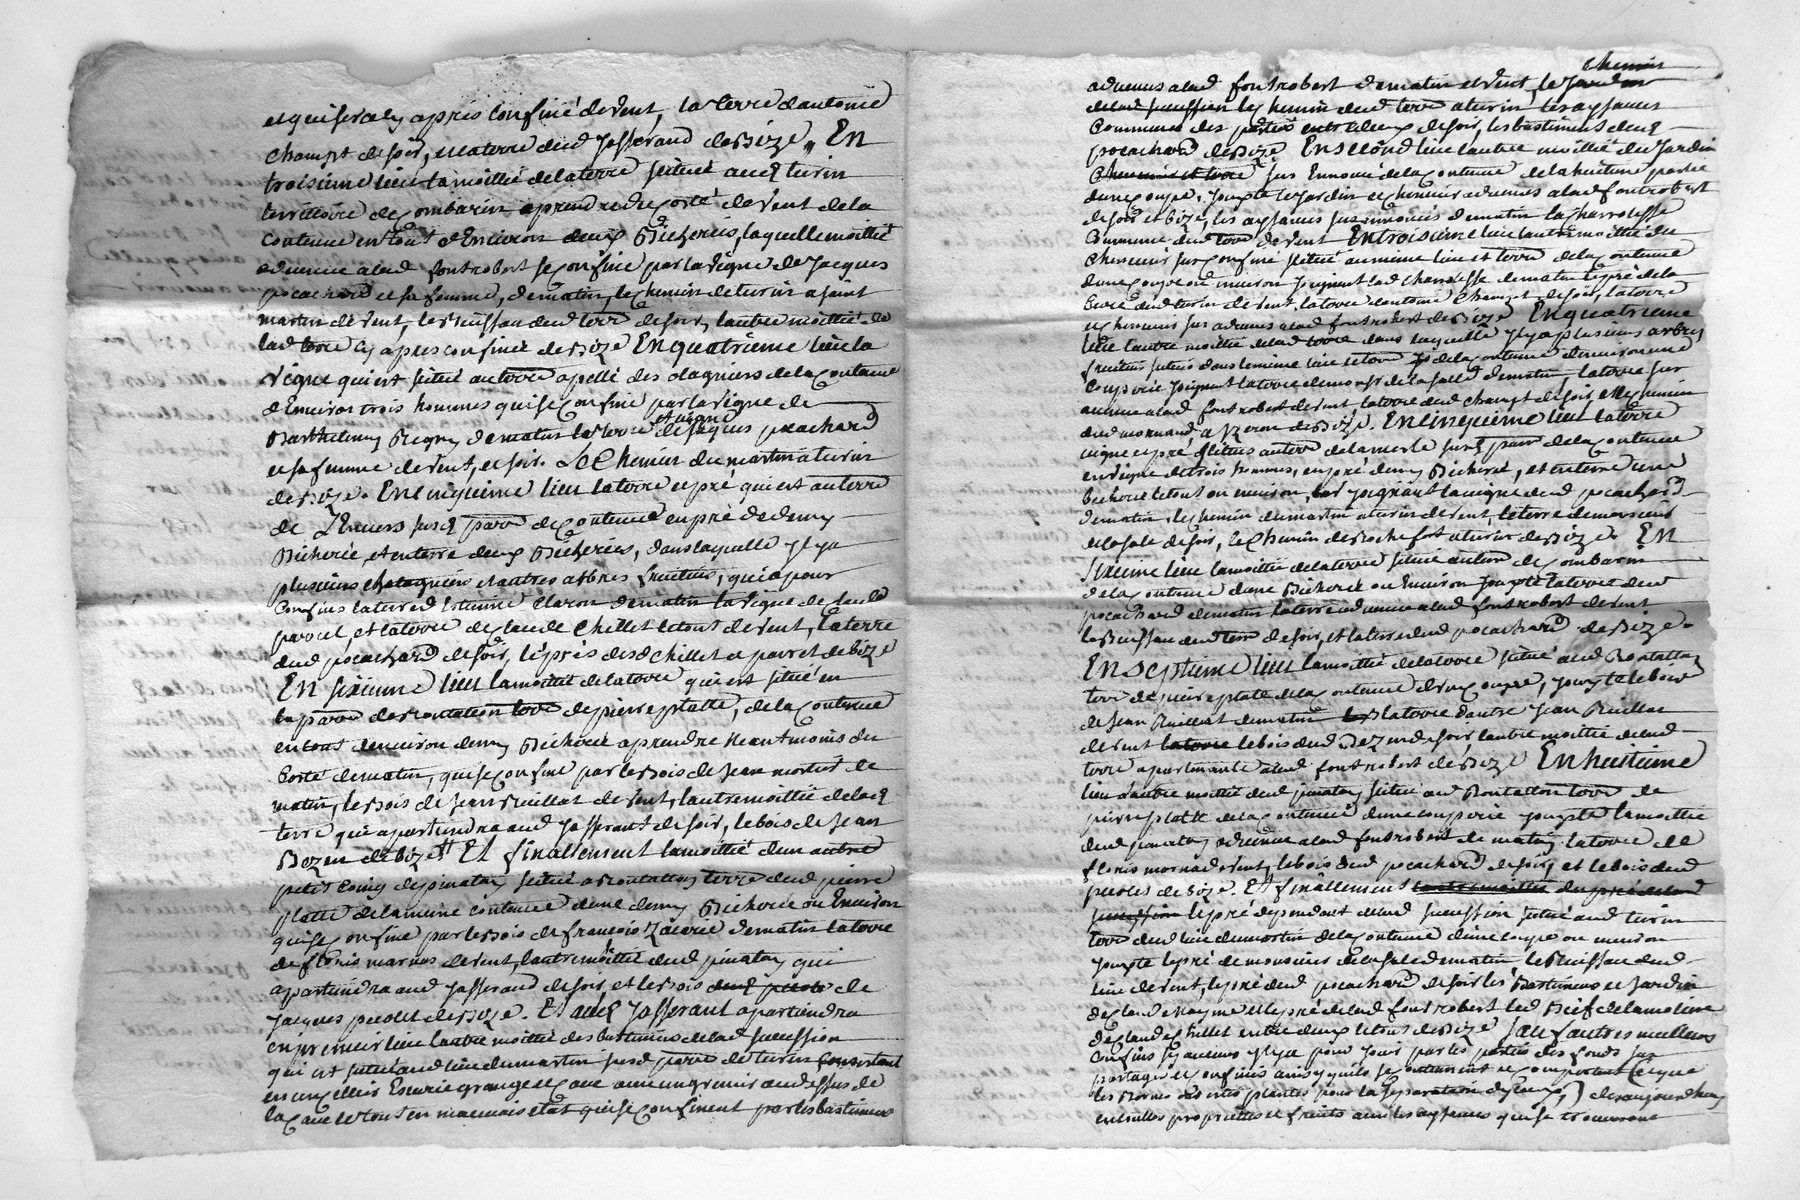 et qui sera cy après confiné de vent, la terre d'antoine
Champt de soir, et la terre dud Jasserand de Bize, En
troisieme lieu la moittié de la terre scituée aud turin
territoire de Combarin a prendre du costé de vent de la
contenue en tout d'Environ deux Bicherées, laquelle moittié
advenue alad fontrobert se confine par la vigne de Jacques
pocachard et sa femme, de matin, le chemin de turin a saint
martin de vent, le Buissan dud terre de soir, l'autre moittié de
lad terre cy apres confinée de Bize En quatrieme lieu la
vigne qui est scituée au terre apellé des olagniers de la contenue
d'Environ trois hommes qui se confine par la vigne de
Barthelemy de matin la terre et vigne de Jaques pocachard
et sa femme de vent, et soir. Le Chemin du martin a turin
de Bize. En cinquieme lieu la terre et pré qui est au terre
de L'Envers susd paroe de contenue en pré de demy
Bicherée, et en terre deux Bicherées, dans laquelle Il y a
plusieurs chataigniers et autres arbres fruitiers, qui a pour
Confins la terre d'Estienne Claron de matin la vigne de
parcel, et la terre de Claude Chillet le tout de vent, la terre
dud pocachard de soir, le près desd Chillet et parret de bize
En sixieme lieu la moittié de la terre qui est scituée en
la paroe de rontalon terre de pierre platte, de la contenue
en tout d'environ demy Bicherée a prendre neantmoins du
Costé de matin, qui se confine par les Bois de Jean mortier de
matin, les Bois de Jean Ruillat de vent, l'autre moittié de lad
terre qui apartiendra aud Jasserant de soir, le bois de Jean
Bezen de bize. Et finallement la moittié d'un autre
petit Coing de pinatay scitué a rontallon terre dud pierre
platte de la meme contenue d'une demy Bicherée ou Environ
qui se confine par les Bois de françois Zacarie de matin la terre
de floris marnas de vent, l'autre moittié dud pinatay qui
apartiendra aud Jasserand de soir et les Bois de
Jacques de Bize. Et aud Jasserant apartiendra
en premier lieu l'autre moittié des bastimens de lad succession
qui est scitué aud lieu du martin susd paroe de turin Consistant
en un cellier Ecurie grange et cave avec un grenier au dessus de
la cave le tout en mauvais état qui se confinent par les bastimens
chemin
advenus alad fontrobert de matin et vent le
le chemin dud terre a turin les aysances
Communes des parties entre deux de soir, les bastimens dud
pocachard de Bize En second lieu l'autre moittié du Jardin
sus Ennoncé de la contenue de la huitieme partie
d'une coupe, Jouxte le Jardin et chenevier advenus alad fontrobert
de soir et bize, les aysances sus ennoncés de matin la charrolesse
Commune dud terre de vent En troisieme lieu l'autre moittié du
Chenevier sus confiné scitué au meme lieu et terre de la contenue
d'une coupe ou environ joignant lad charrolesse de matin le pré de la
Cure dud turin de vent, la terre d'antoine Champt de soir, la terre
et chenevier sus advenus alad fontrobert de Bize En quatrieme
lieu l'autre moittié de lad terre dans laquelle Il y a plusieurs arbres
fruitiers scitués dans le meme lieu et terre de la contenue d'environ une
Couperée Joignant la terre de monsr de la salle de matin la terre sus
advenue alad fontrobert de vent la terre dud champt de soir, et le chemin
dud mornand, a yzeron de Bize. En cinquieme lieu la terre
vigne et pré scitués au terre de la merle susd paroe de la contenue
en vigne de trois hommes, en pré demy Bicherée, et en terre une
bicherée le tout ou environ, joignant la vigne dud pocachard
de matin, le chemin du martin a turin de vent, la terre de monsieur
de la sale de soir, le Chemin de Rochefort a turin de Bize. En
sixieme lieu la moittié de la terre scituée au terre de Combarin
de la contenue d'une Bicherée ou Environ Jouxte la terre dud
pocachard de matin la terre advenue alad fontrobert de vent
le Buissan dud terre de soir, et la terre dud pocachard de Bize.
En septieme lieu la moittié de la terre scituée aud Rontallon
terre de pierre platte de la contenue d'une coupe, Jouxte le bois
de Jean Ruillat de matin la terre d'autre Jean Ruillat
de vent le bois dud Bezen de soir l'autre moittié de lad
terre apartenante alad fontrobert de Bize En huitieme
lieu l'autre moittié dud pinatay scitué aud Rontallon terre de
pierre platte de la contenue d'une couperée Jouxte la moittié
dud pinatay advenue alad fontrobert de matin, la terre de
floris mornas de vent, le bois dud pocachard de soir, et le bois dud
de bize. Et finallement
le pré dependant de lad succession scitué aud turin
terre dud lieu du martin de la contenue d'une coupe ou environ
Jouxte le pré de monsieur de la sale de matin le Buissan dud
lieu de vent, le pré dud pocachard de soir les Bastimens et Jardin
de Claud et le pré de lad fontrobert led Bief de la moline
de Claude Chillet entre deux le tout de Bize sauf autres meilleurs
Confins sy aucuns Il y a pour Jouir par les parties des fonds sus
partagés et confinés ainsy qu'ils se contiennent et comportent
les Bornes ont été plantées pour la separation d'yceux, de aujourdhuy
en toutes proprietés et fruits avec les aysances qui se trouveront